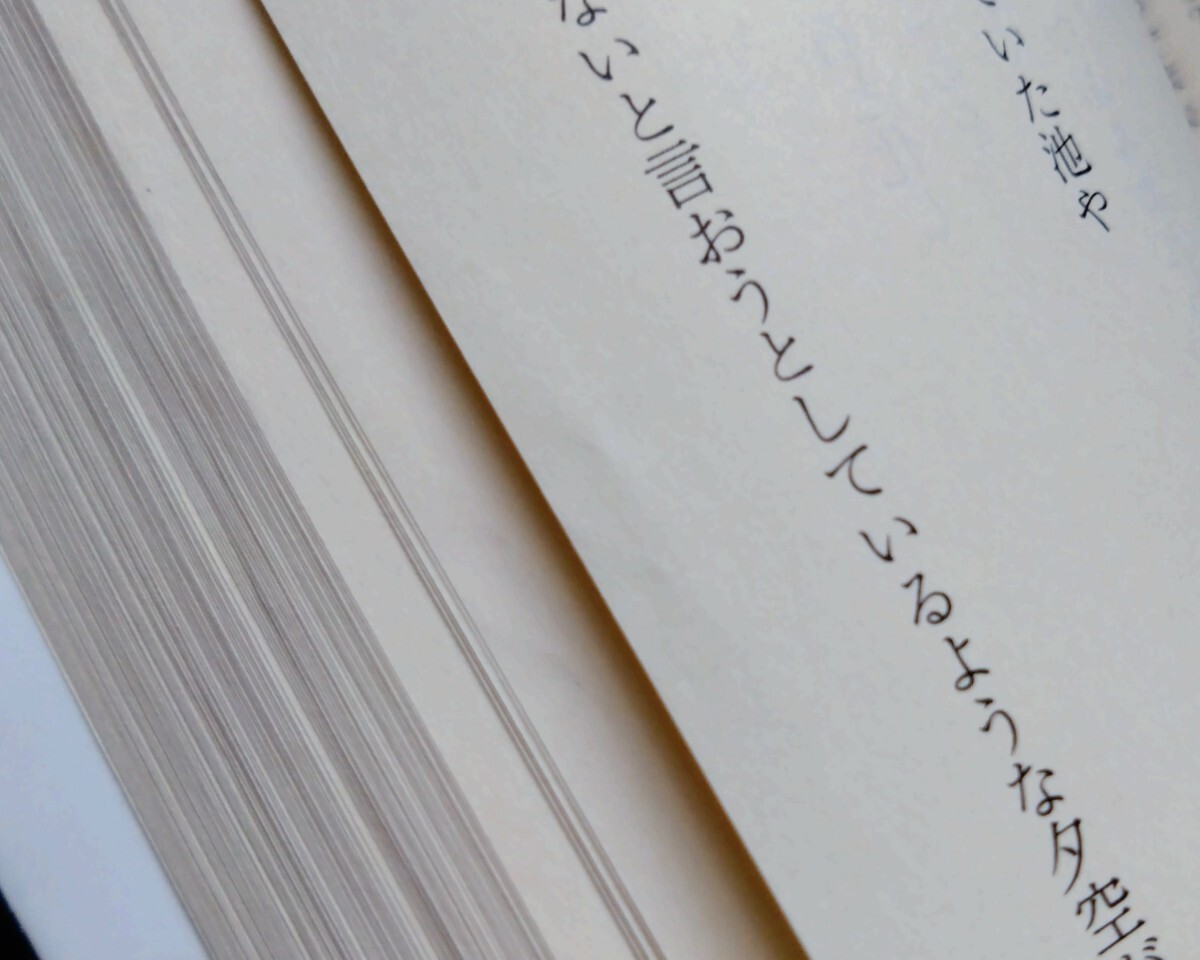 いた池や
ないと言おうとしているような夕空